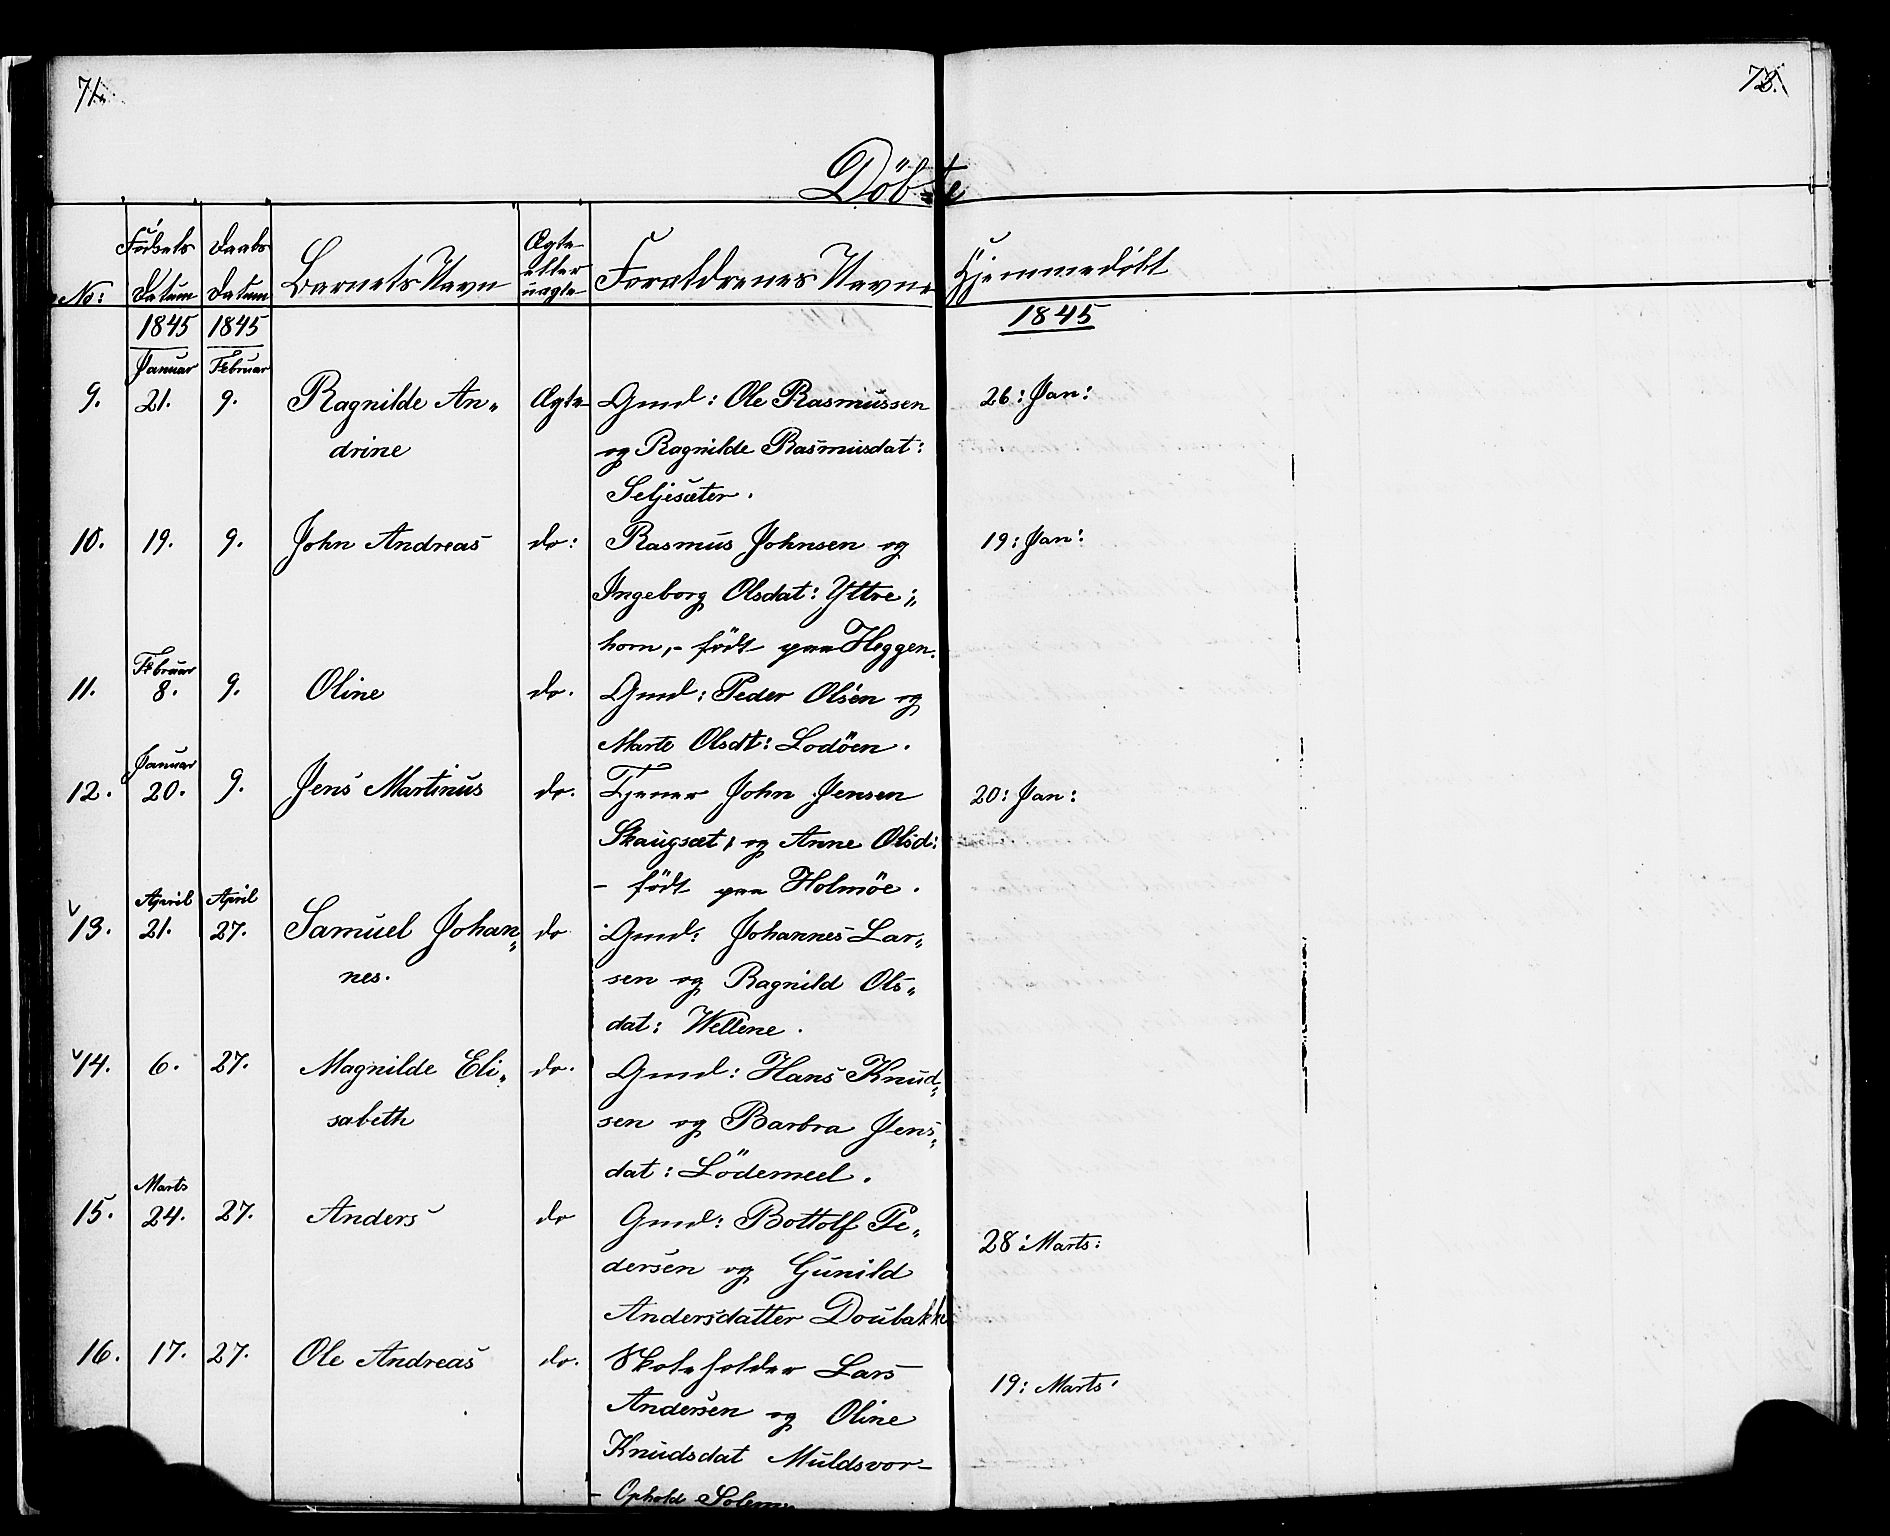 71.
Döbte
No: Födsels Datum Daabs Datum Barnets Navn Ægte eller uægte Forældrenes Navne Hjemmedøbt
1845 1845 1845
Januar Februar
9. 21. 9. Ragnilde An„ Ægte Gmd: Ole Rasmussen 26: Jan:
drine og Ragnilde Rasmusdat:
Seljesæter.
10. 19. 9. John Andreas do: Rasmus Johnsen og 19: Jan:
Ingeborg Olsdat: Yttre„
horn,- födt paa Heggen.
Februar
11. 8. 9. Oline do. Gmd: Peder Olsen og
Marte Olsdt: Lodöen.
Januar
12. 20. 9. Jens Martinus do. Tjener John Jensen 20: Jan:
Skaugsæt, og Anne Olsd:
- födt paa Holmöe.
April April
13. 21. 27. Samuel Johan„ do Gmd: Johannes Lar„
nes. sen og Ragnild Ols„
dat: Wellene.
14. 6. 27. Magnilde Eli„ do. Gmd: Hans Knud„
sabeth sen og Barbra Jens„
dat: Lödemeel.
Marts
15. 24. 27. Anders do Gmd: Bottolf Pe„ 28: Marts:
dersen og Gunild
Andersdatter Doubakke
16. 17. 27. Ole Andreas do. Skoleholder Lars 19: Marts:
Andersen og Oline
Knudsdat Muldsvor-
- Ophold Solem